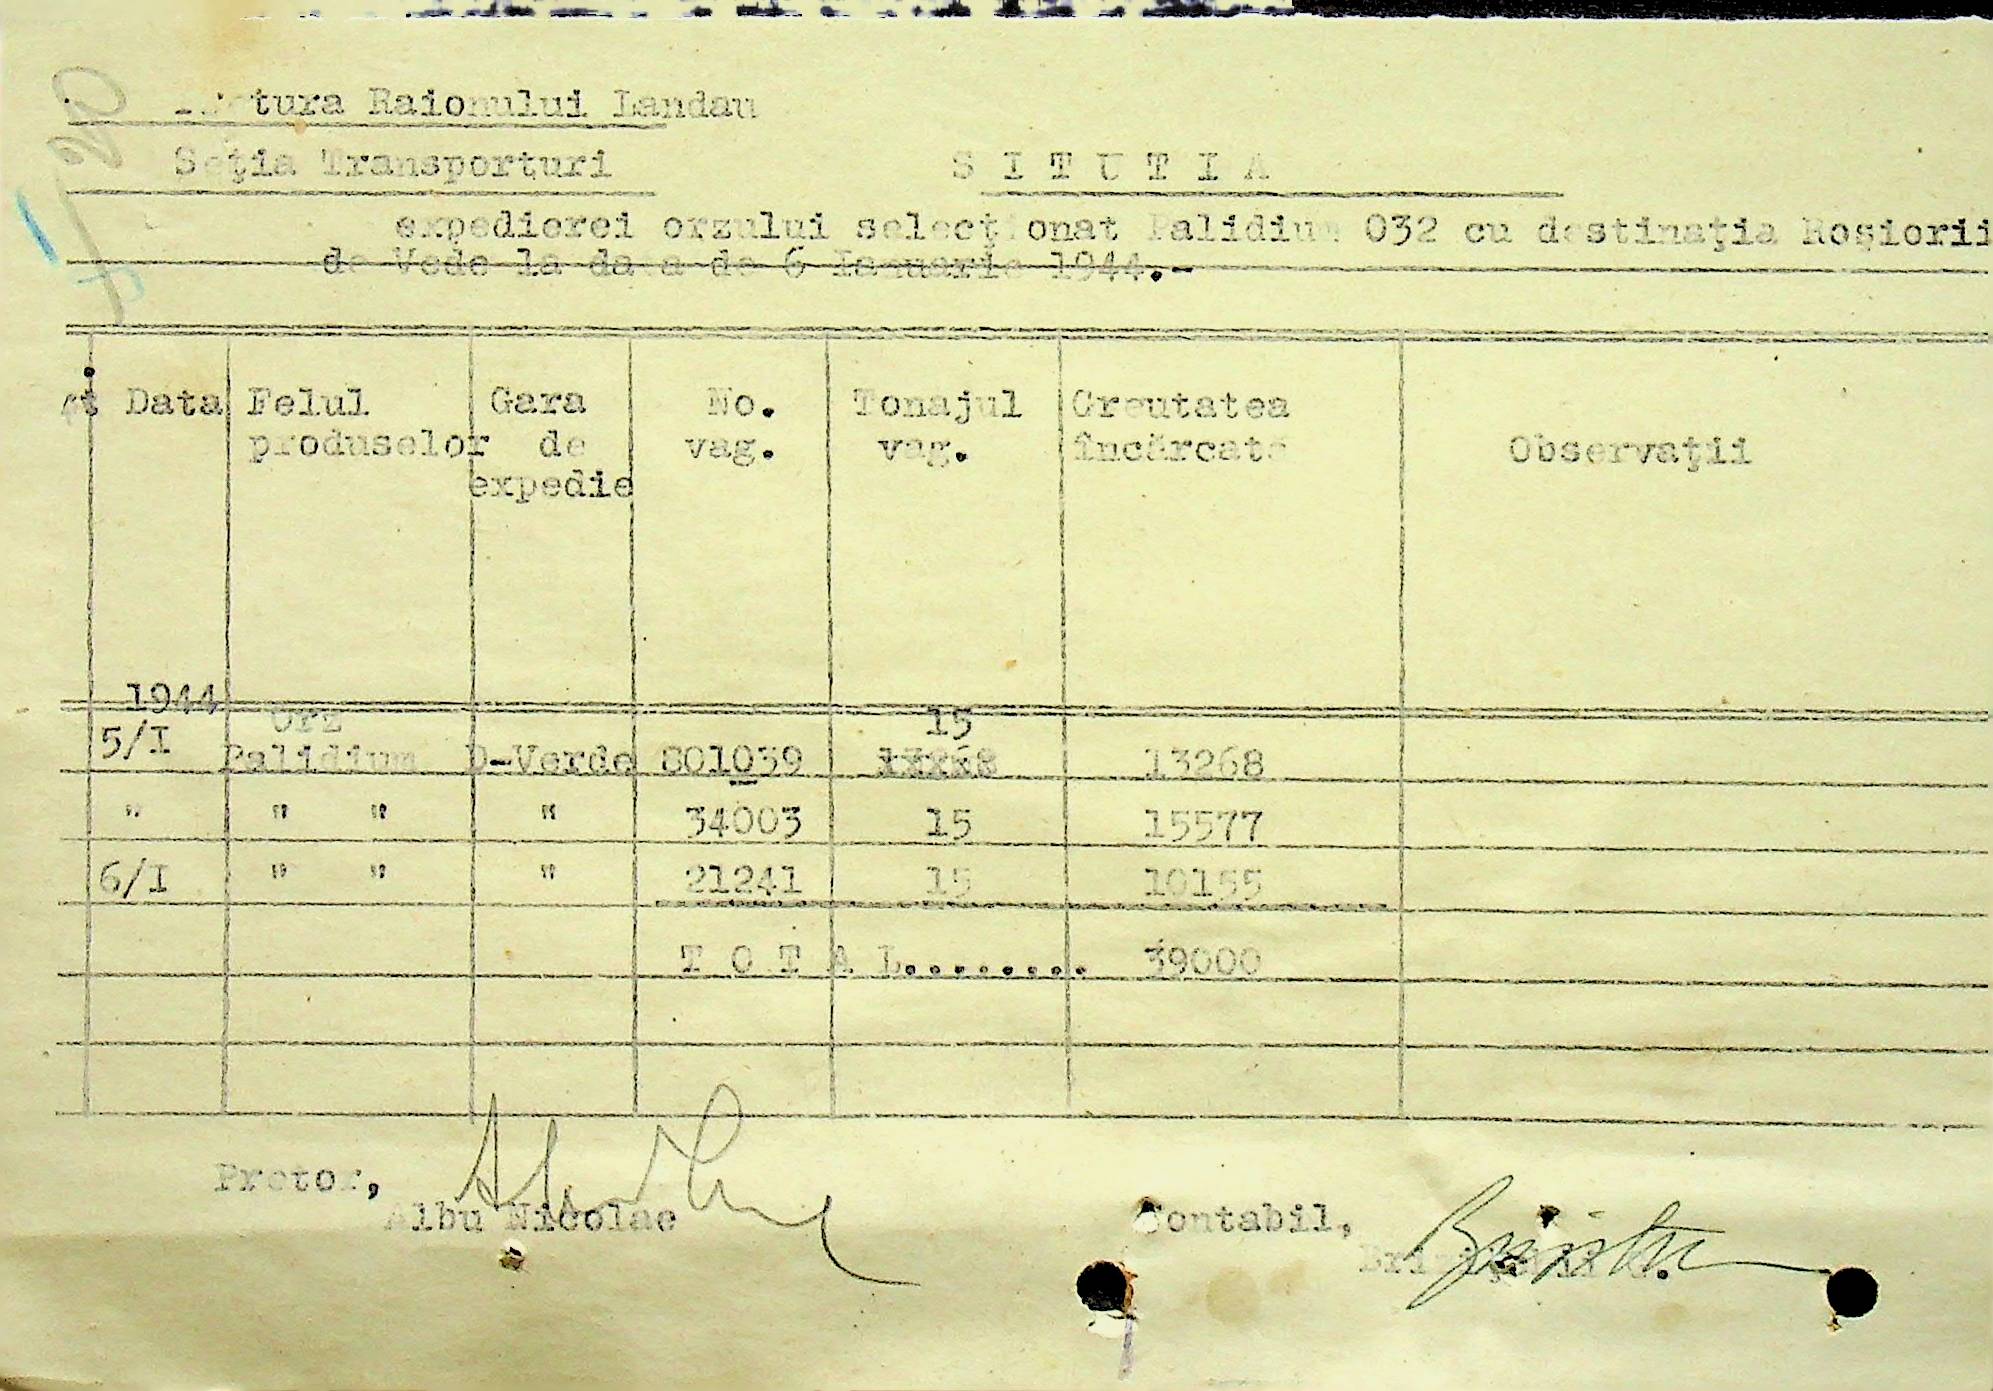 Pretura Raionului Landau
Seţia Transporturi
S I T U T I A
expedierei orzului selecţionat Palidium 032 cu destinaţia Roşiorii
de Vede la data de 6 Ianuarie 1944.-
Data Felul Gara No. Tonajul Greutatea
produselor de vag. vag. încărcată Observaţii
expedie
1944
Orz 15
5/I Palidium D-Verde 801039 13268
" " " " 34003 15 15577
6/I " " " 21241 15 10155
T O T A L......... 39000
Pretor,
Albu Nicolae
Contabil,